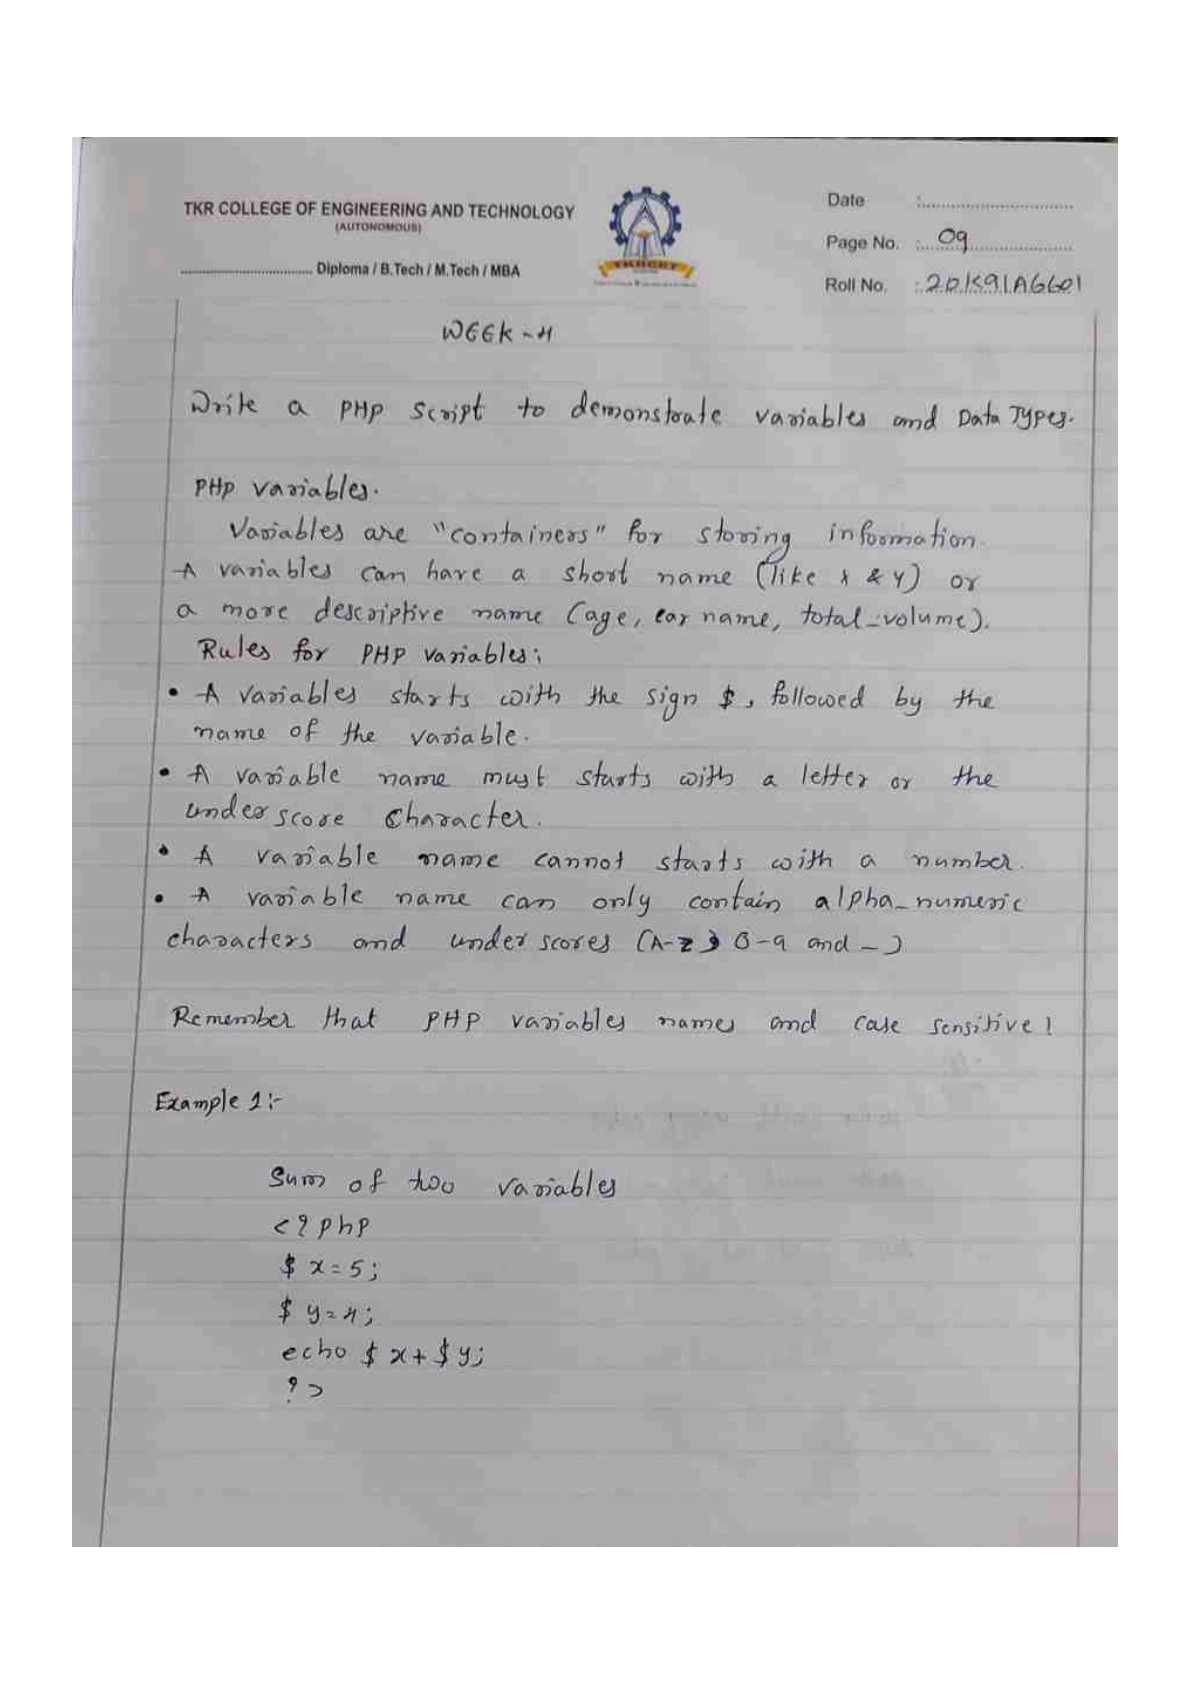 TKR COLLEGE OF ENGINEERING AND TECHNOLOGY
(AUTONOMOUS)
Diploma / B.Tech / M.Tech / MBA
TKRCET
Date :
Page No. : 09
Roll No. : 20K91A6601
WEEK-4
Write a PHP Script to demonstrate variables and Data Types.
PHP variables.
Variables are "containers" for storing information.
A variables can have a short name (like x & y) or
a more descriptive name (age, car name, total_volume).
Rules for PHP variables:
• A variables starts with the sign $, followed by the
name of the variable.
• A variable name must starts with a letter or the
underscore character.
• A variable name cannot starts with a number.
• A variable name can only contain alpha_numeric
characters and underscores (A-z, 0-9 and _)
Remember that PHP variables names and case sensitive!
Example 1:-
Sum of two variables
<?php
$x=5;
$y=4;
echo $x+$y;
?>